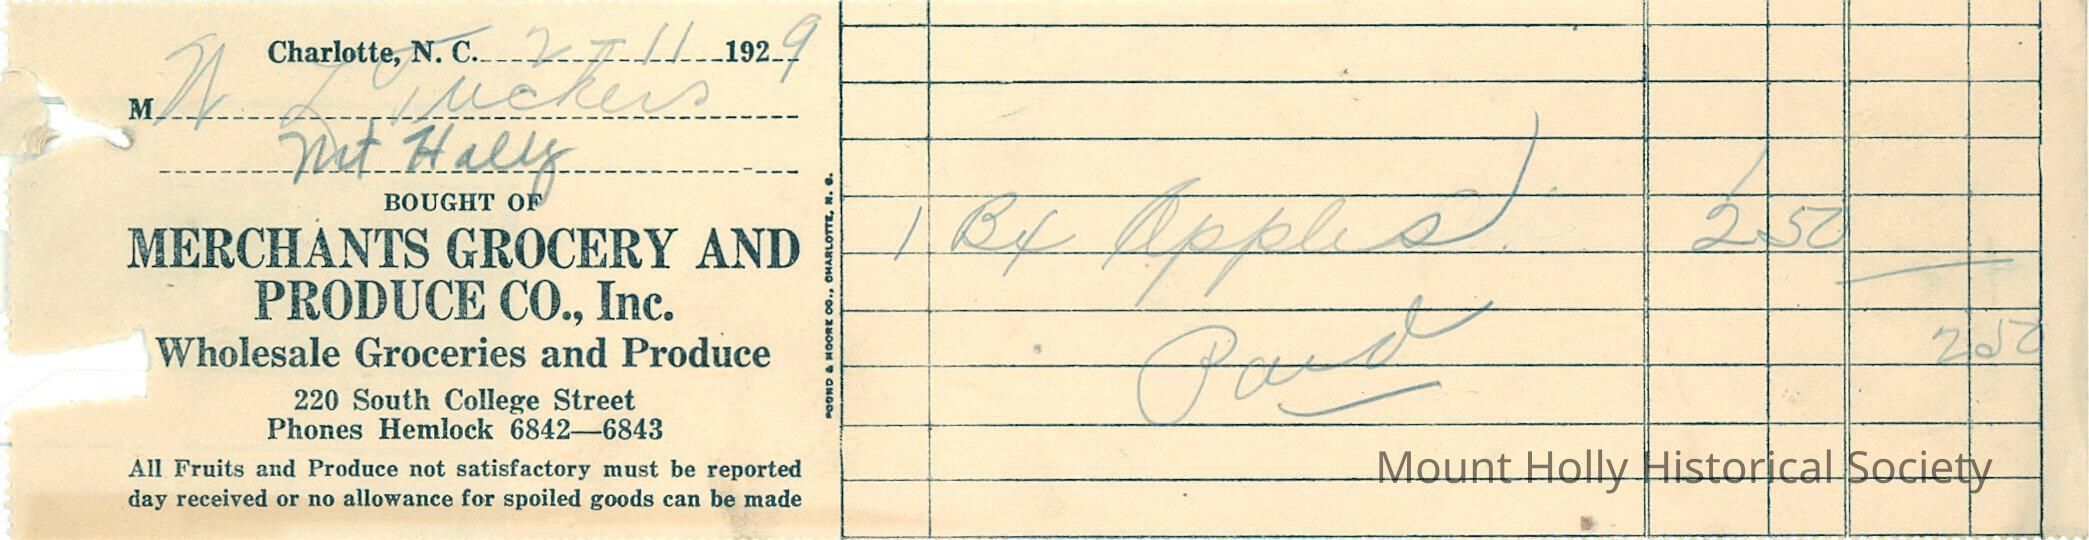 Charlotte, N. C. 2-11 1929
M W L Tuckers
Mt Holly
BOUGHT OF
MERCHANTS GROCERY AND
PRODUCE CO., Inc.
Wholesale Groceries and Produce
220 South College Street
Phones Hemlock 6842—6843
All Fruits and Produce not satisfactory must be reported
day received or no allowance for spoiled goods can be made
POUND & MOORE CO., CHARLOTTE, N. C.
1 Bx Apples 2 50
Paid
2 50
Mount Holly Historical Society